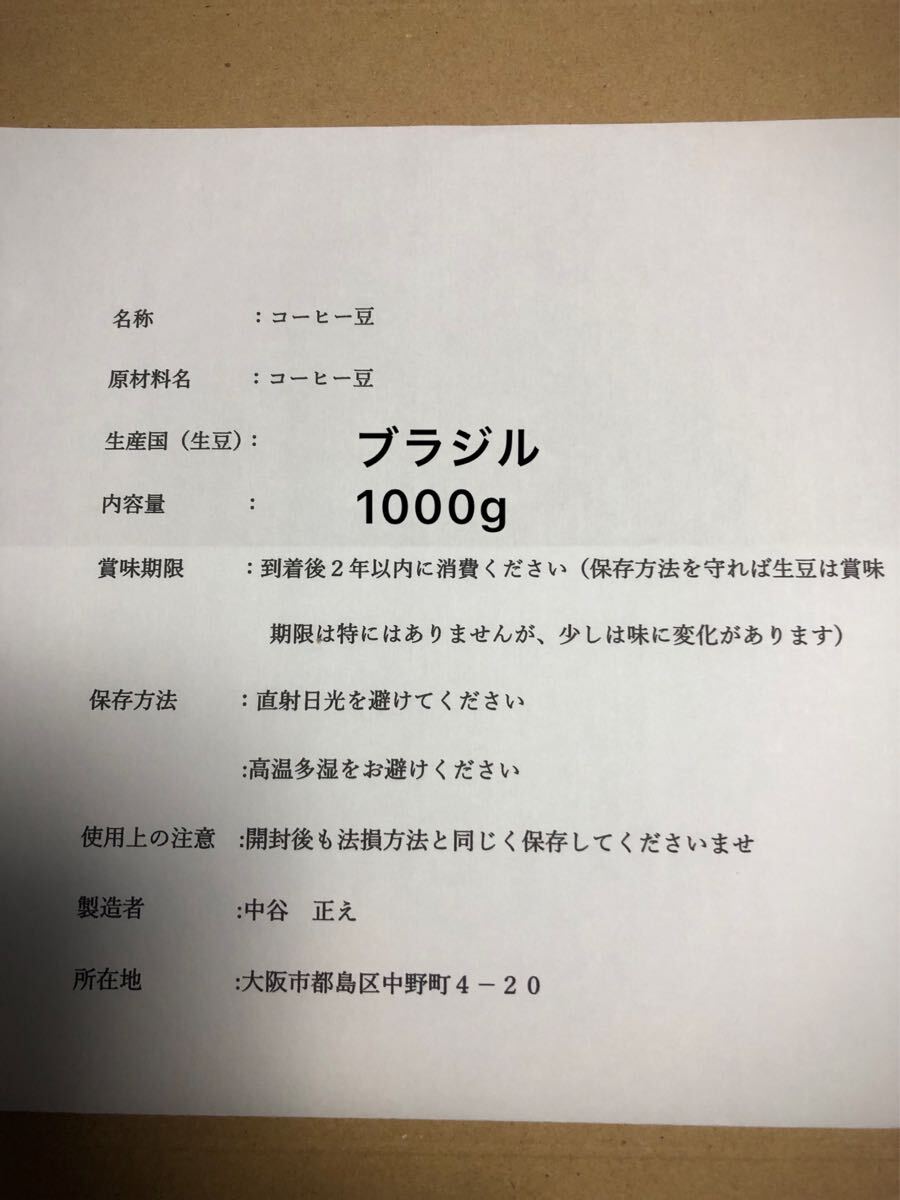 名称　：コーヒー豆
原材料名　：コーヒー豆
生産国（生豆）：　ブラジル
内容量　：　1000g
賞味期限　：到着後２年以内に消費ください（保存方法を守れば生豆は賞味
期限は特にはありませんが、少しは味に変化があります）
保存方法　：直射日光を避けてください
:高温多湿をお避けください
使用上の注意　:開封後も法損方法と同じく保存してくださいませ
製造者　:中谷　正え
所在地　:大阪市都島区中野町４－２０